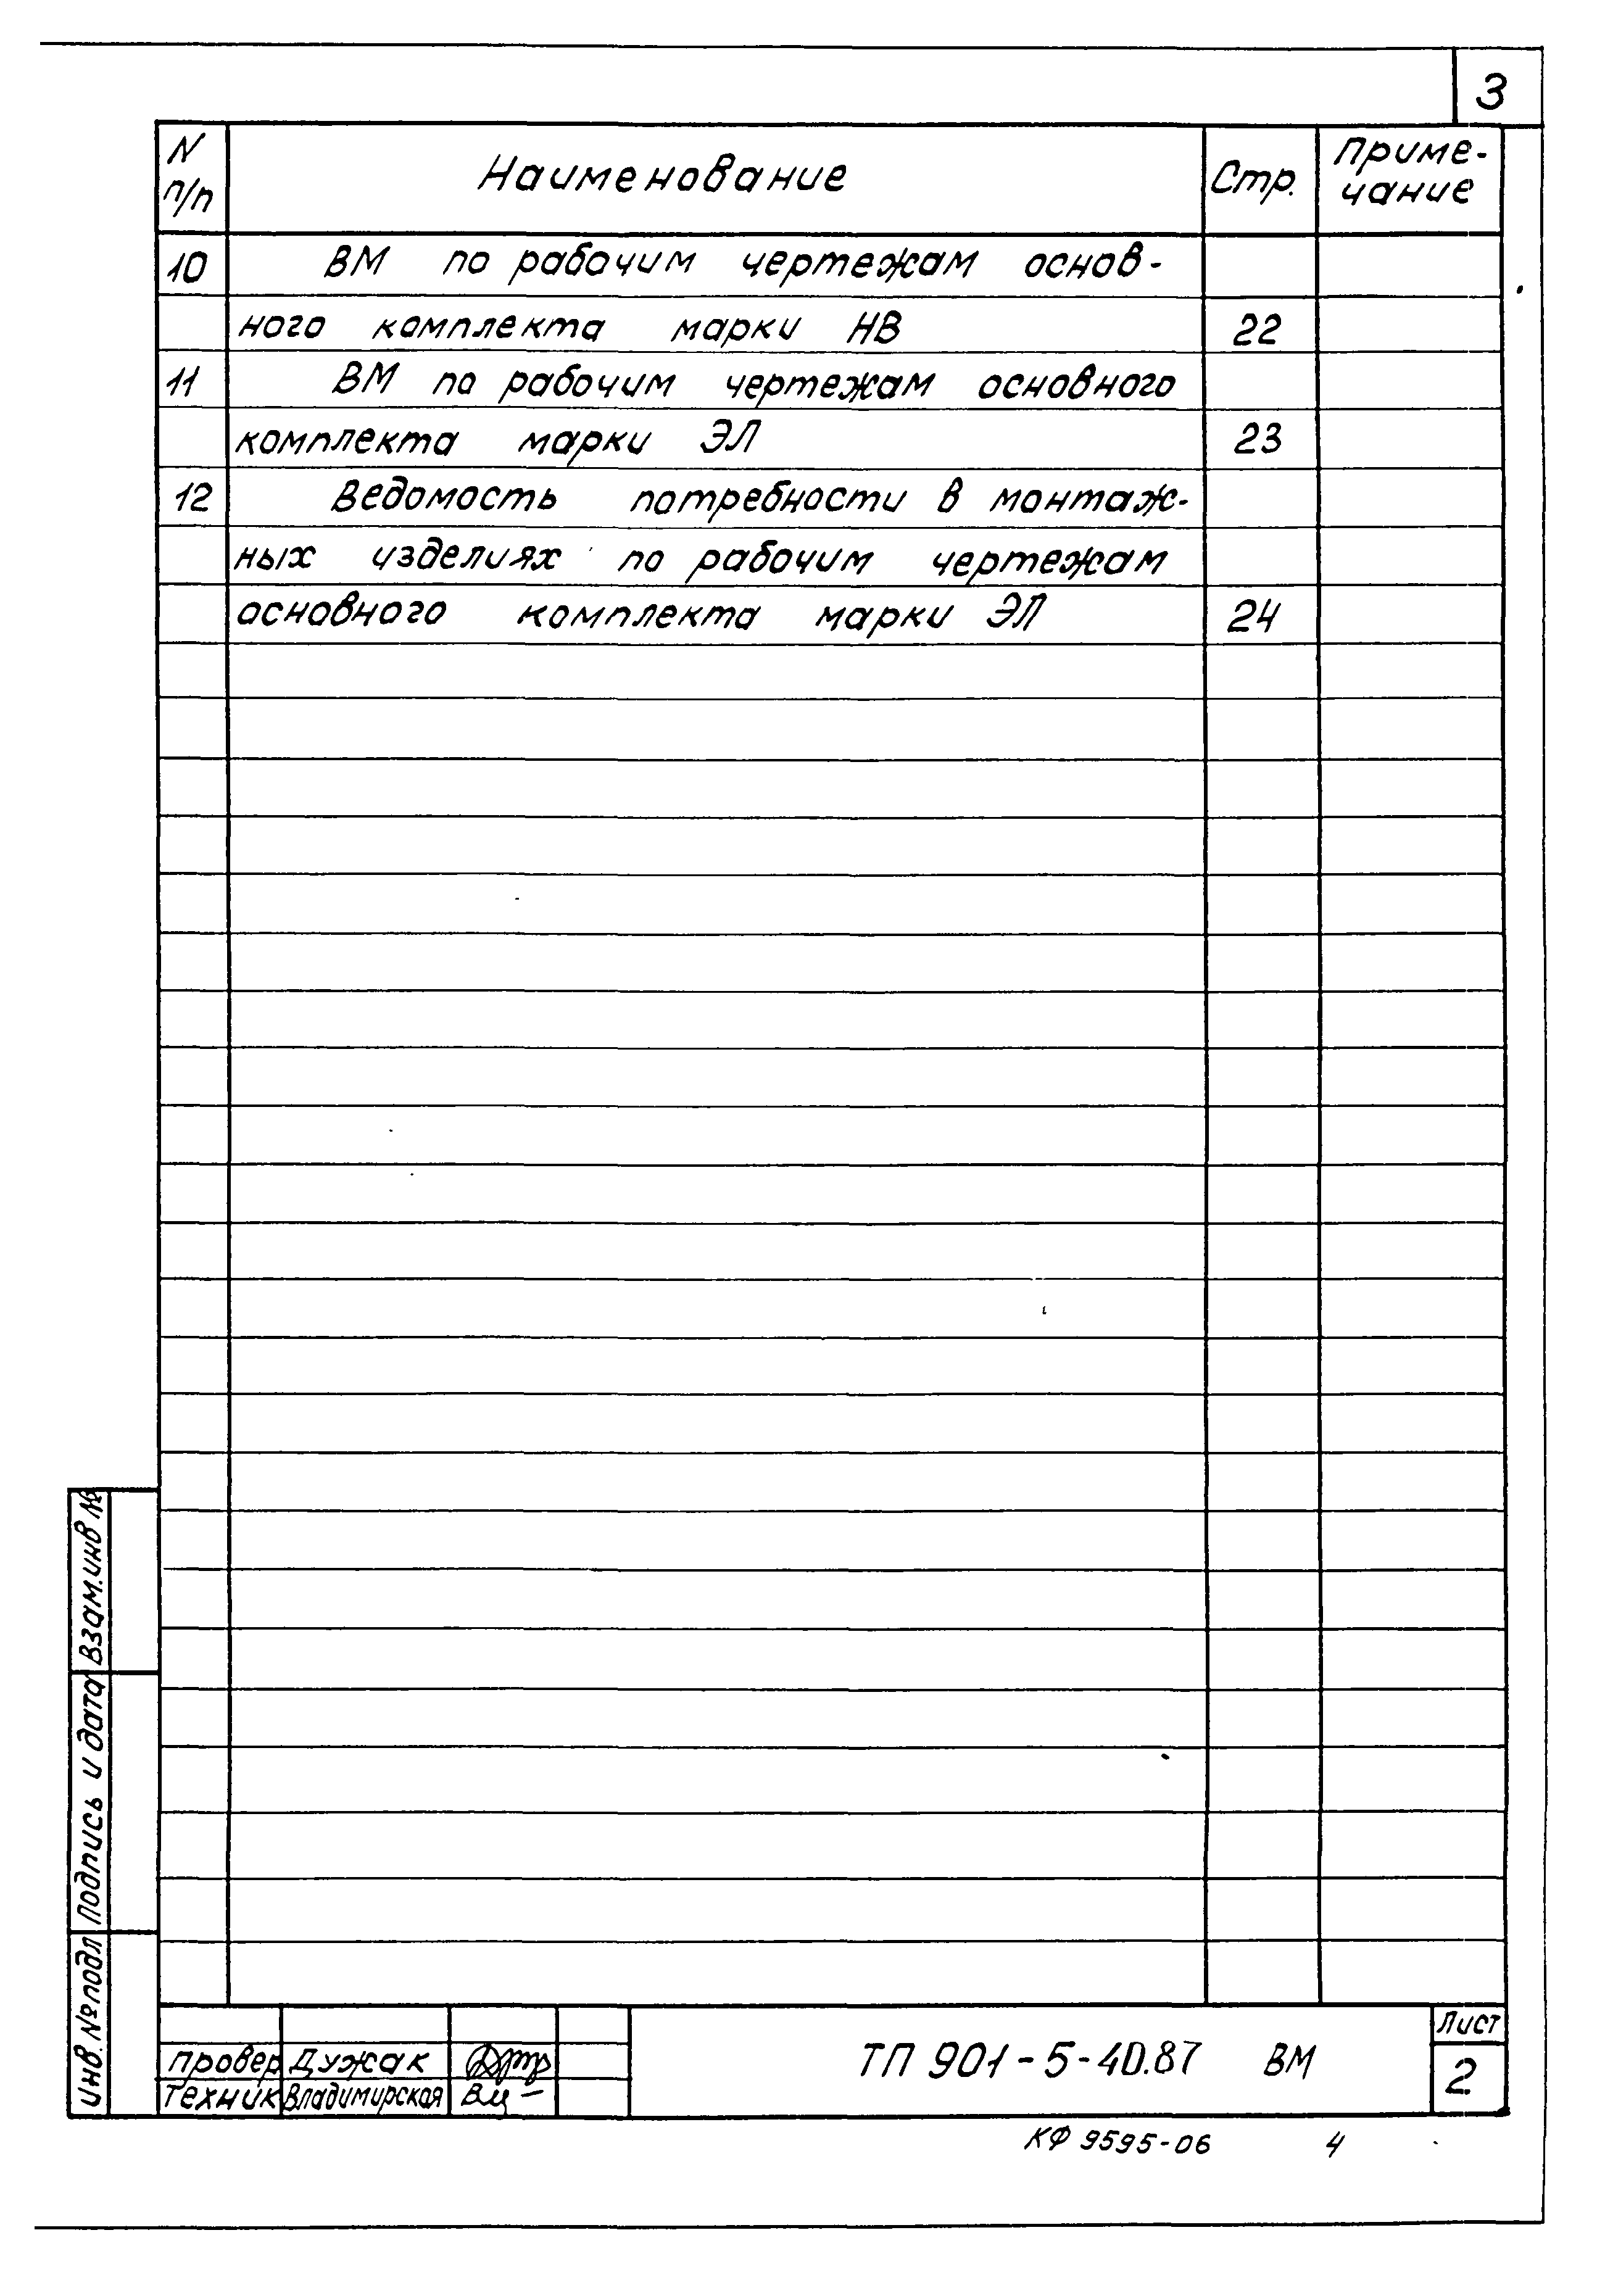 3
N п/п Наименование Стр. Приме-чание
10 ВМ по рабочим чертежам основ-
ного комплекта марки НВ 22
11 ВМ по рабочим чертежам основного
комплекта марки ЭЛ 23
12 Ведомость потребности в монтаж-
ных изделиях по рабочим чертежам
основного комплекта марки ЭЛ 24
Взам.инв №
Подпись и дата
Инв. № подл
Провер Дужак
Техник Владимирская
ТП 901-5-40.87 ВМ
Лист
2
КФ 9595-06 4